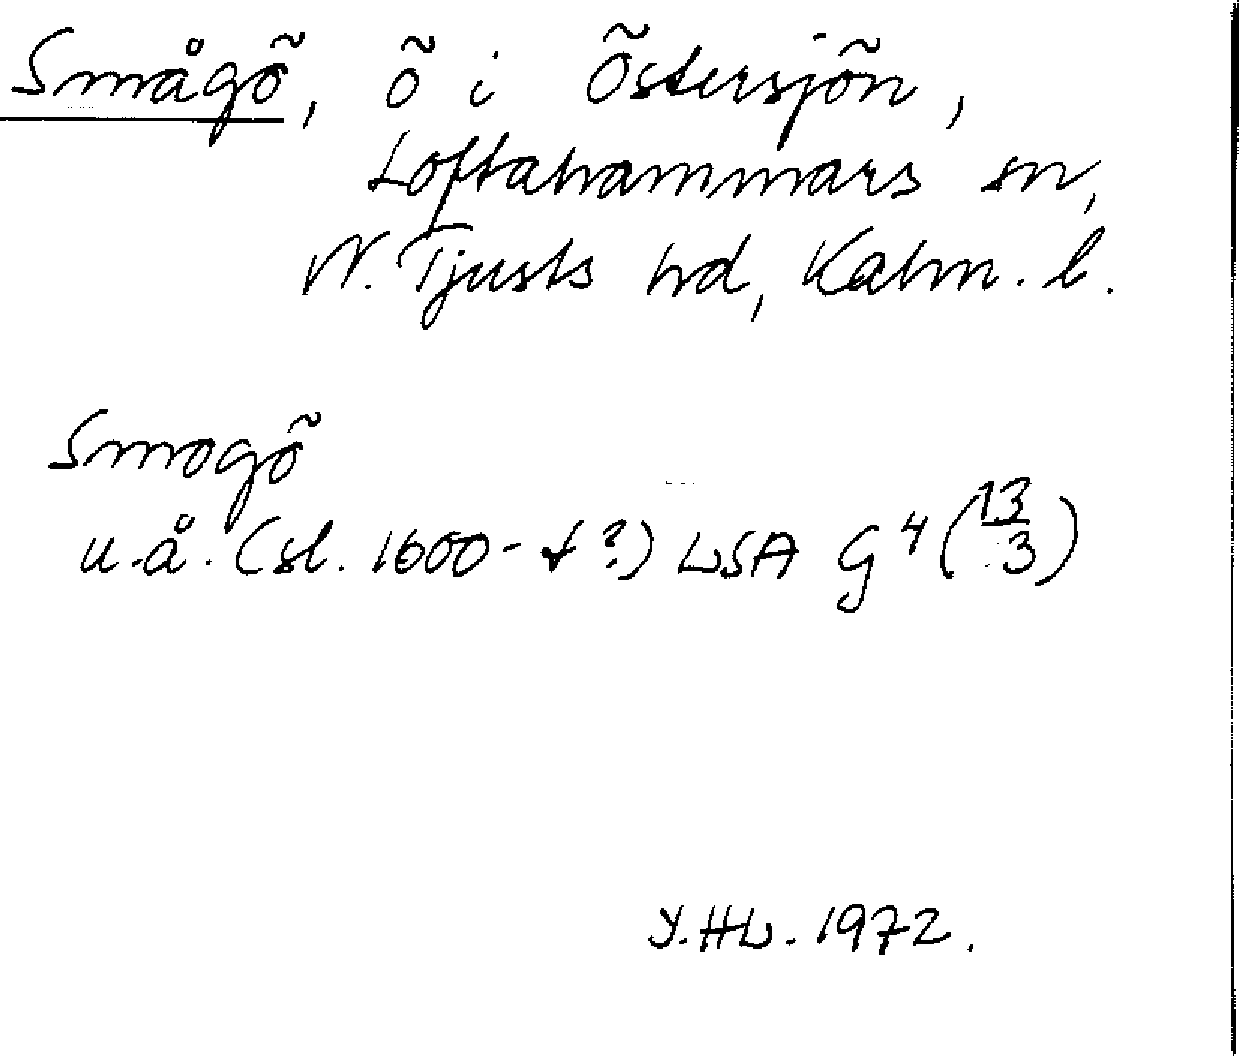 Smågö, ö i Östersjön,
Loftahammars sn,
N. Tjusts hd, Kalm. l.
Smogö
u.å. (sl. 1600-t?) LSA G⁴ (13/3)
Y.HL. 1972.